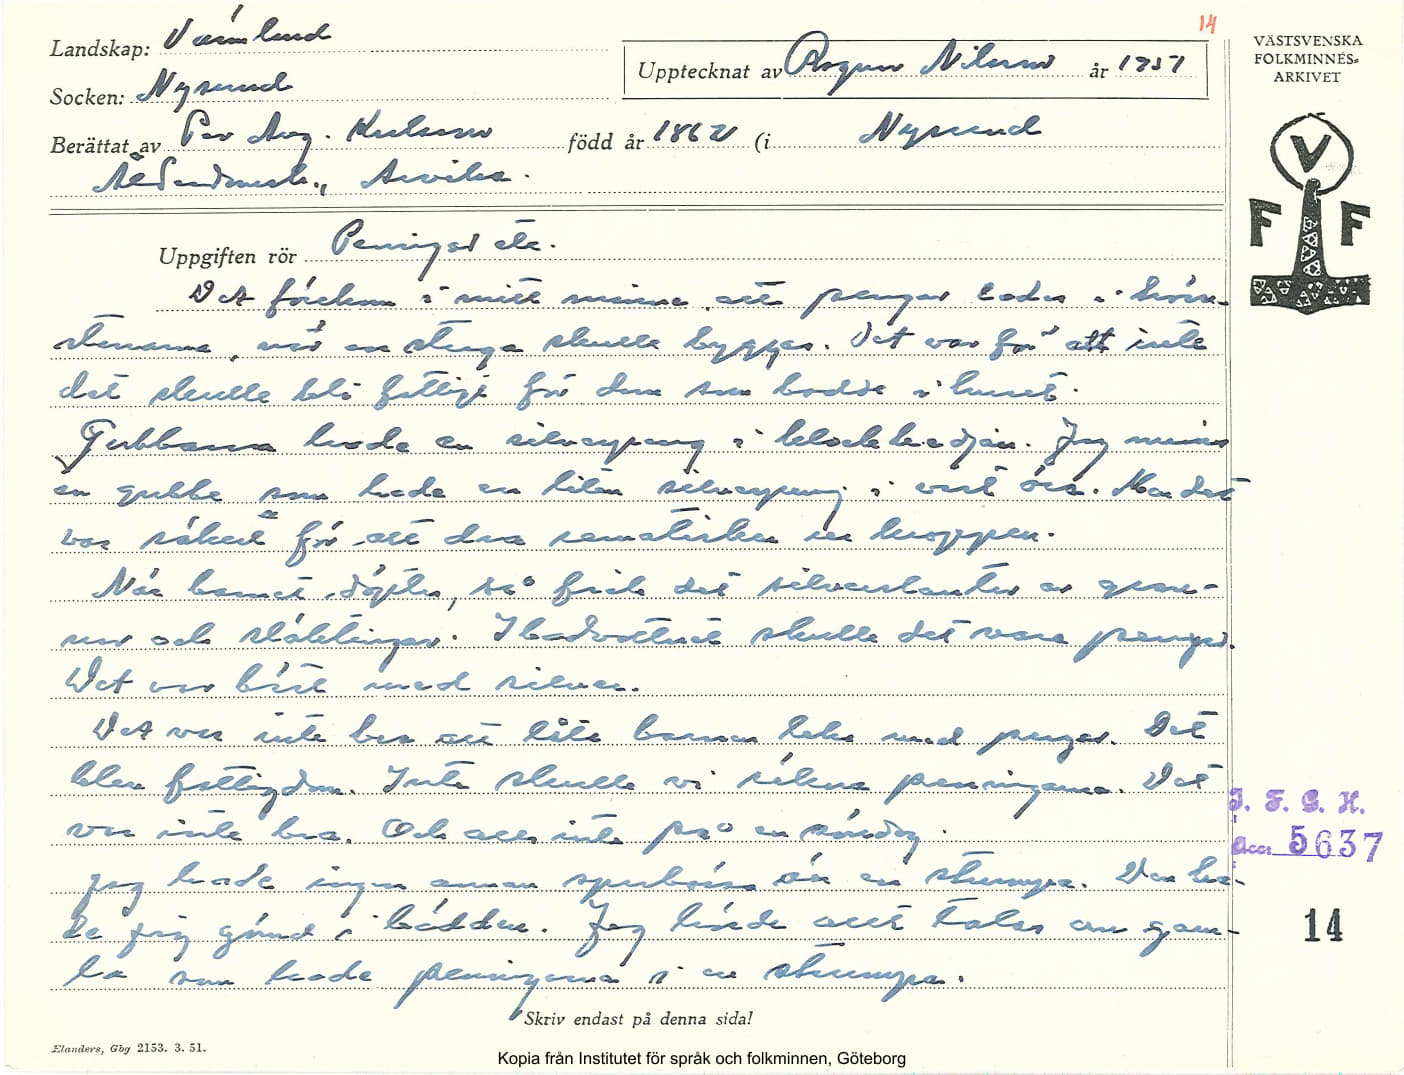 14
Landskap: Värmland
Upptecknat av Ragnar Nilsson år 1957
VÄSTSVENSKA
FOLKMINNES-
ARKIVET
Socken: Nysund
Berättat av Per Aug. Karlsson född år 1862 (i Nysund
Ålderdomsh., Arvika.
V
F F
Uppgiften rör Pengar etc.
Det förekom i mitt minne att pengar lades i hörn-
stenarna, när en stuga skulle byggas. Det var för att inte
det skulle bli fattigt för dem som bodde i huset.
Gubbarna hade en silverpeng i klockkedjan. Jag minns
en gubbe som hade en liten silverpeng i vart öra. Men det
var säkert för att dra rematisken ur kroppen.
När barnet döptes, så fick det silverslantar av gran-
nar och släktingar. I badvattnet skulle det vara pengar.
Det var bäst med silver.
Det var inte bra att låta barnen leka med pengar. Det
blev fattigdom. Inte skulle vi räkna pengarna. Det
var inte bra. Och alls inte på en söndag.
Jag hade ingen annan sparbössa än en strumpa. Den ha-
de jag gömd i bädden. Jag hörde allt talas om gam-
la som hade pengarna i en strumpa.
I. F. G. H.
Acc. 5637
14
Skriv endast på denna sida!
Elanders, Gbg 2153. 3. 51.
Kopia från Institutet för språk och folkminnen, Göteborg